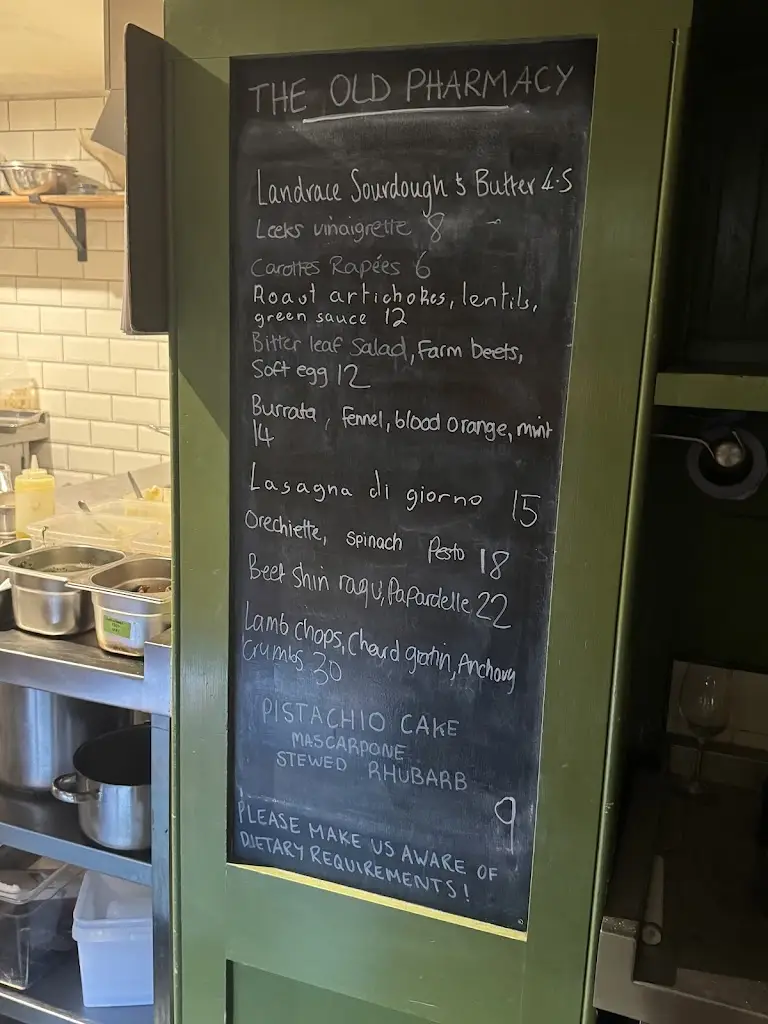 THE OLD PHARMACY
Landrace Sourdough & Butter 4.5
Leeks vinaigrette 8
Carottes Rapées 6
Roast artichokes, lentils,
green sauce 12
Bitter leaf Salad, Farm beets,
Soft egg 12
Burrata, fennel, blood orange, mint
14
Lasagna di giorno 15
Orechiette, spinach Pesto 18
Beef Shin ragu, Papardelle 22
Lamb chops, Chard gratin, Anchovy
Crumbs 30
PISTACHIO CAKE
MASCARPONE
STEWED RHUBARB
9
PLEASE MAKE US AWARE OF
DIETARY REQUIREMENTS!